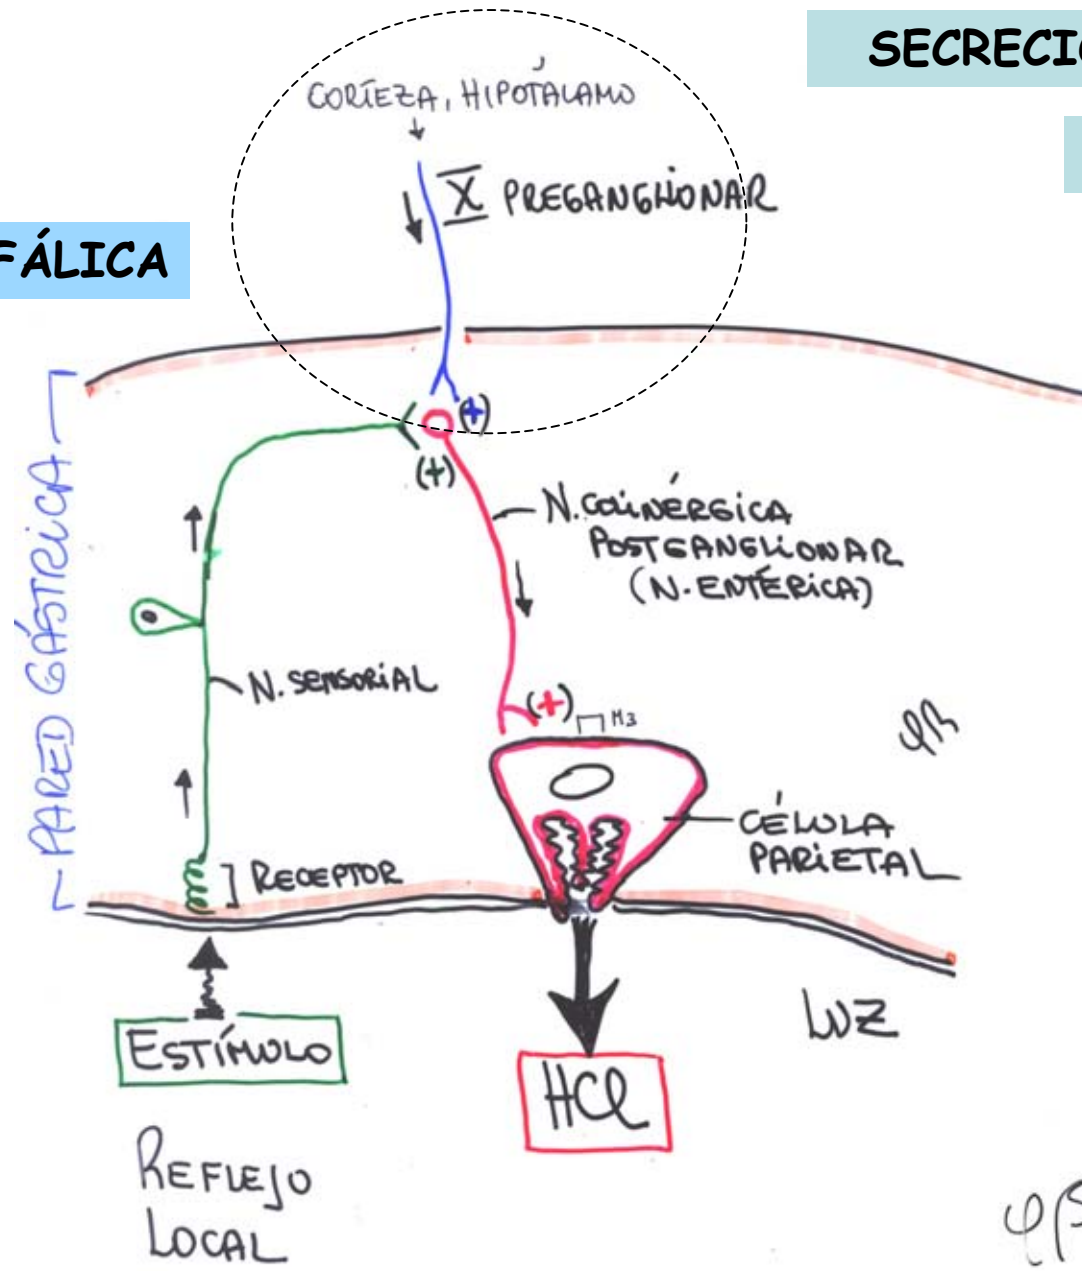 SECRECIÓ
FÁLICA
CORTEZA, HIPOTÁLAMO
X PREGANGLIONAR
(+)
(+)
N. COLINÉRGICA
POSTGANGLIONAR
(N. ENTÉRICA)
PARED GÁSTRICA
N. SENSORIAL
(+)
M3
CÉLULA
PARIETAL
] RECEPTOR
LUZ
ESTÍMULO
HCl
REFLEJO
LOCAL